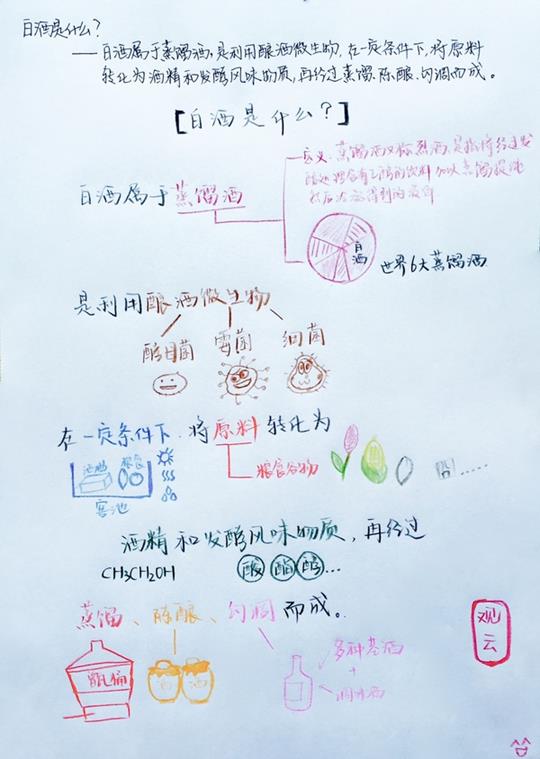 白酒是什么？
——白酒属于蒸馏酒,是利用酿酒微生物,在一定条件下,将原料
转化为酒精和发酵风味物质,再经过蒸馏、陈酿、勾调而成。
【白酒是什么？】
定义:蒸馏酒又称烈酒,是指将经过发
酵处理含有乙醇的饮料加以蒸馏提纯
然后
得到的
白酒属于蒸馏酒
白酒
世界6大蒸馏酒
是利用酿酒微生物
酵母菌 霉菌 细菌
在一定条件下,将原料转化为
酒糟 粮食
粮食谷物
窖池
酒精和发酵风味物质,再经过
CH3CH2OH 酸 酯 醇...
蒸馏、陈酿、勾调而成。
多种基酒
+
调味酒
甑桶
酒 酒
观云